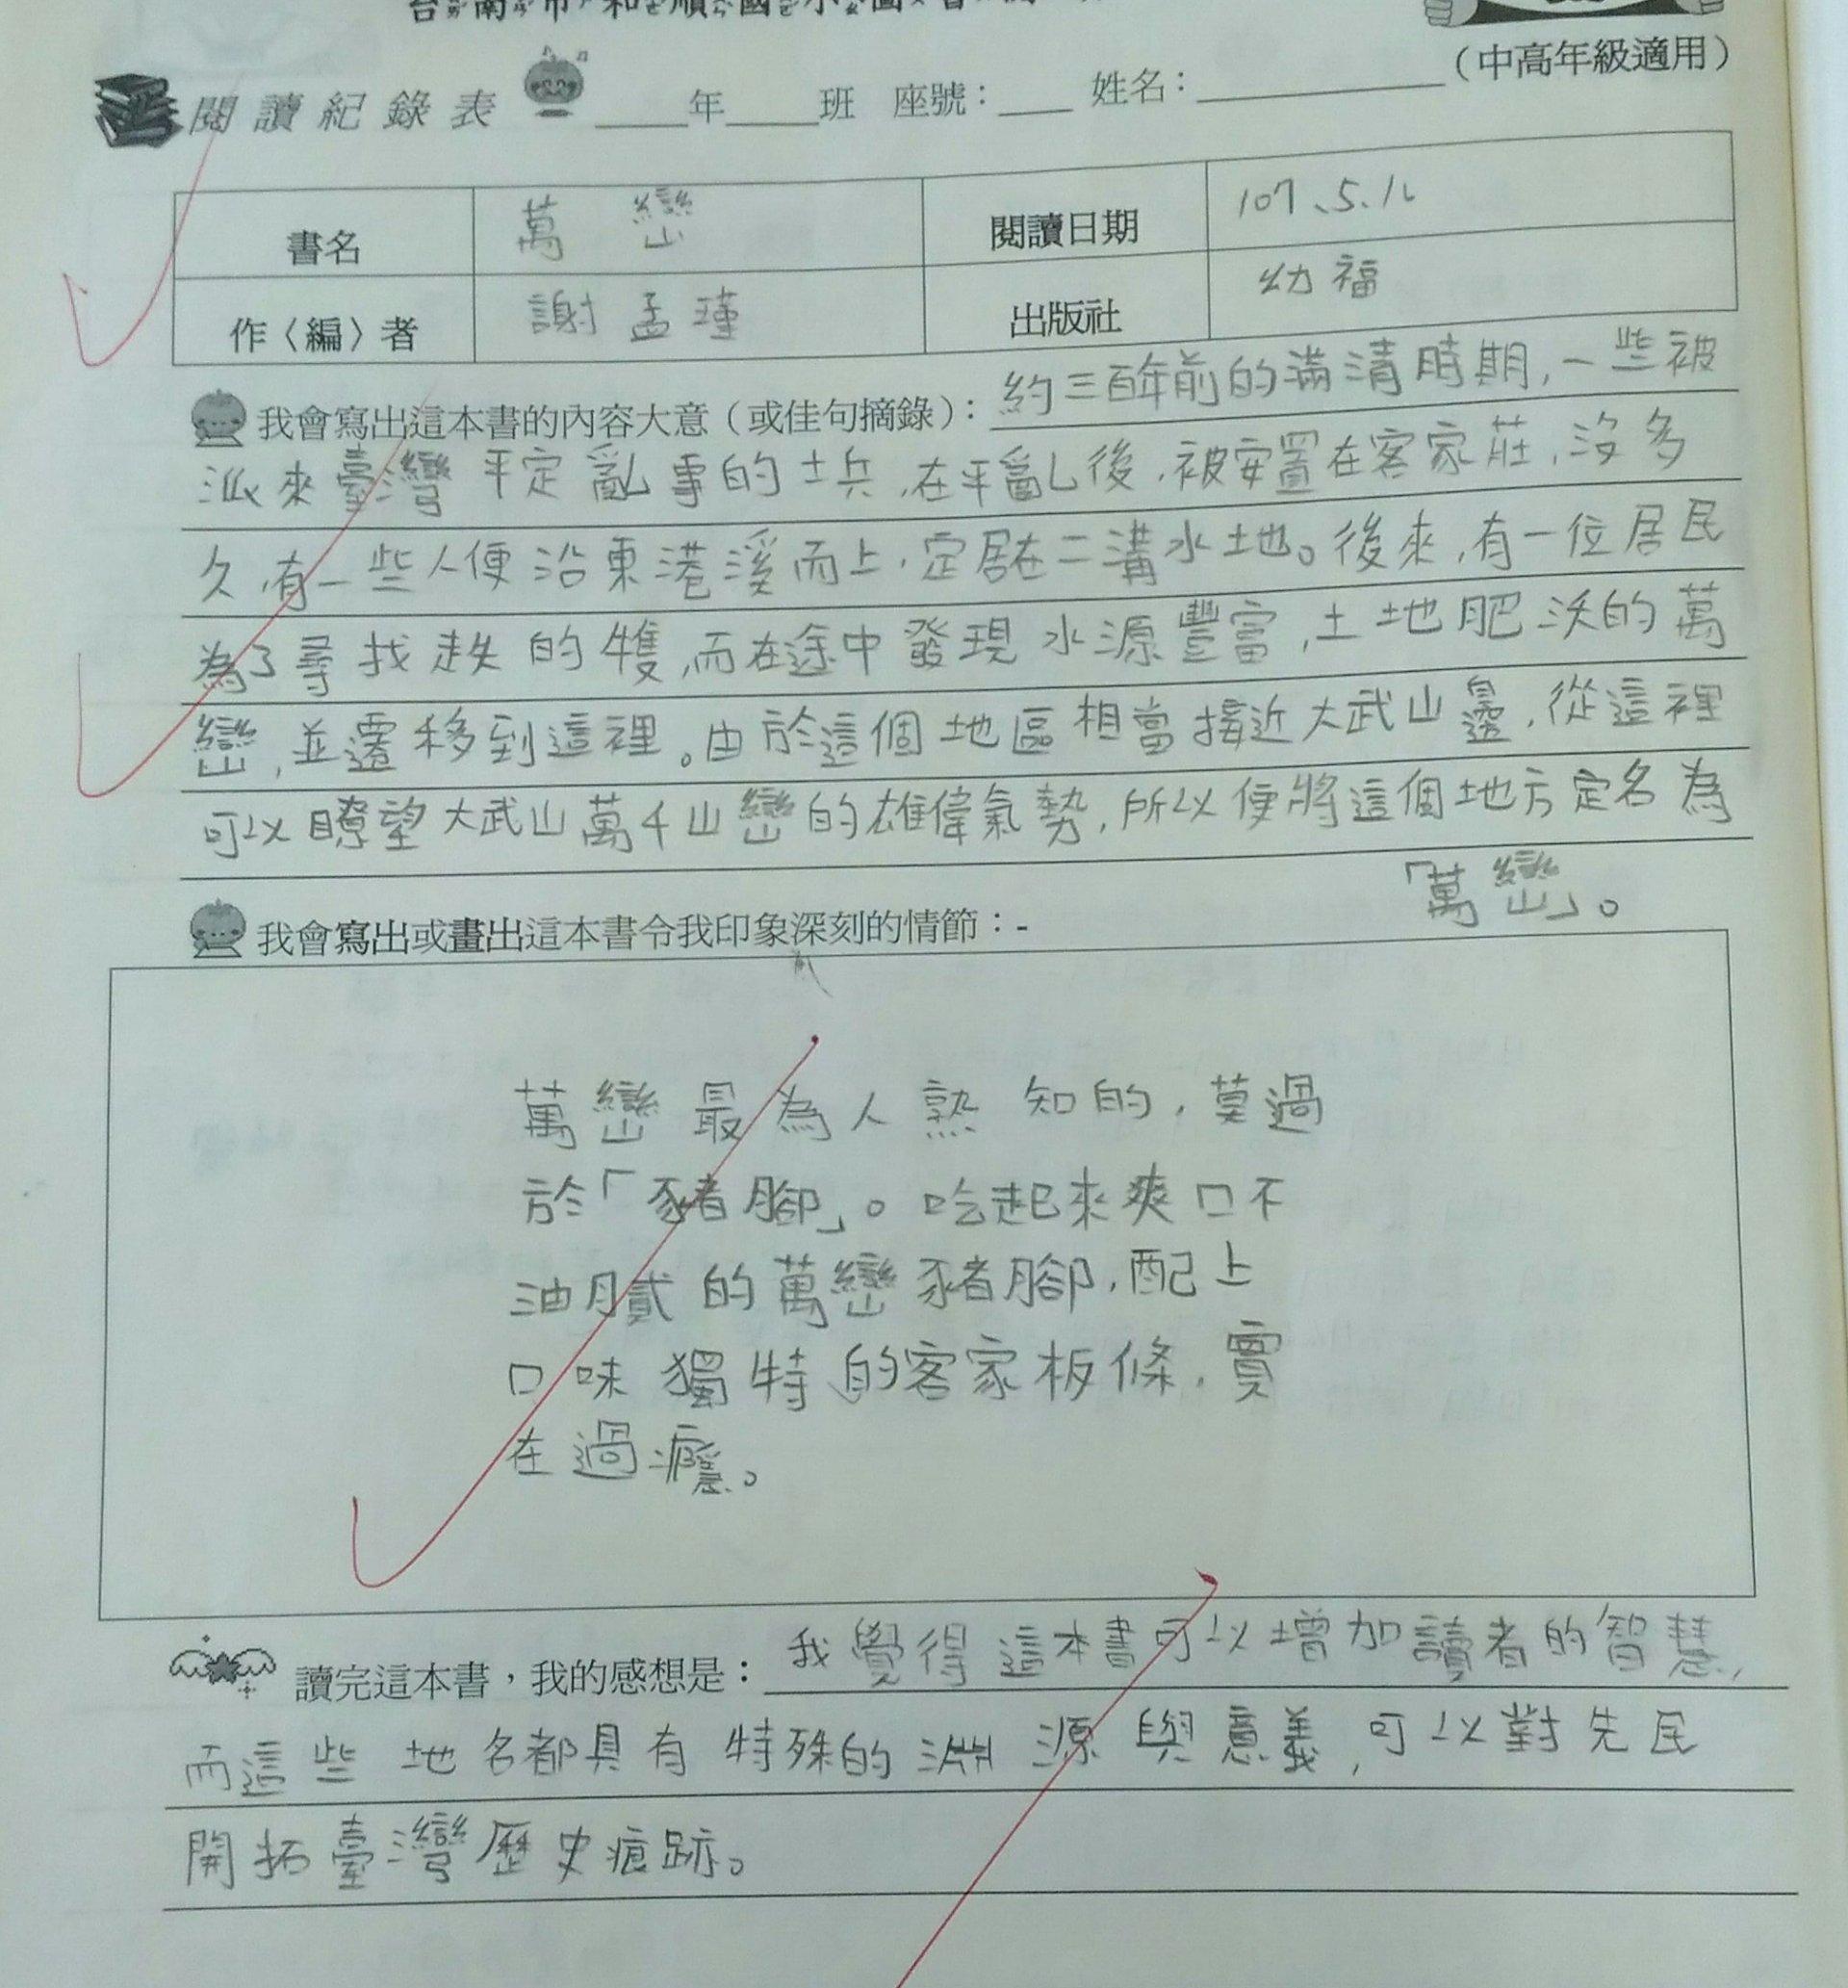 台南市和順國小圖書
(中高年級適用)
閱讀紀錄表 ____年____班 座號：___ 姓名：________
書名 萬巒 閱讀日期 107、5、
作〈編〉者 謝孟瑾 出版社 幼福
我會寫出這本書的內容大意（或佳句摘錄）：約三百年前的滿清時期，一些被
派來臺灣平定亂事的士兵，在平亂後，被安置在客家莊，沒多
久，有一些人便沿東港溪而上，定居在二溝水地。後來，有一位居民
為了尋找走失的隻，而在途中發現水源豐富，土地肥沃的萬
巒，並遷移到這裡。由於這個地區相當接近大武山邊，從這裡
可以瞭望大武山萬千山巒的雄偉氣勢，所以便將這個地方定名為
「萬巒」。
我會寫出或畫出這本書令我印象深刻的情節：-
萬巒最為人熟知的，莫過
於「豬腳」。吃起來爽口不
油膩的萬巒豬腳，配上
口味獨特的客家板條，實
在過癮。
讀完這本書，我的感想是：我覺得這本書可以增加讀者的智慧，
而這些地名都具有特殊的淵源與意義，可以對先民
開拓臺灣歷史痕跡。